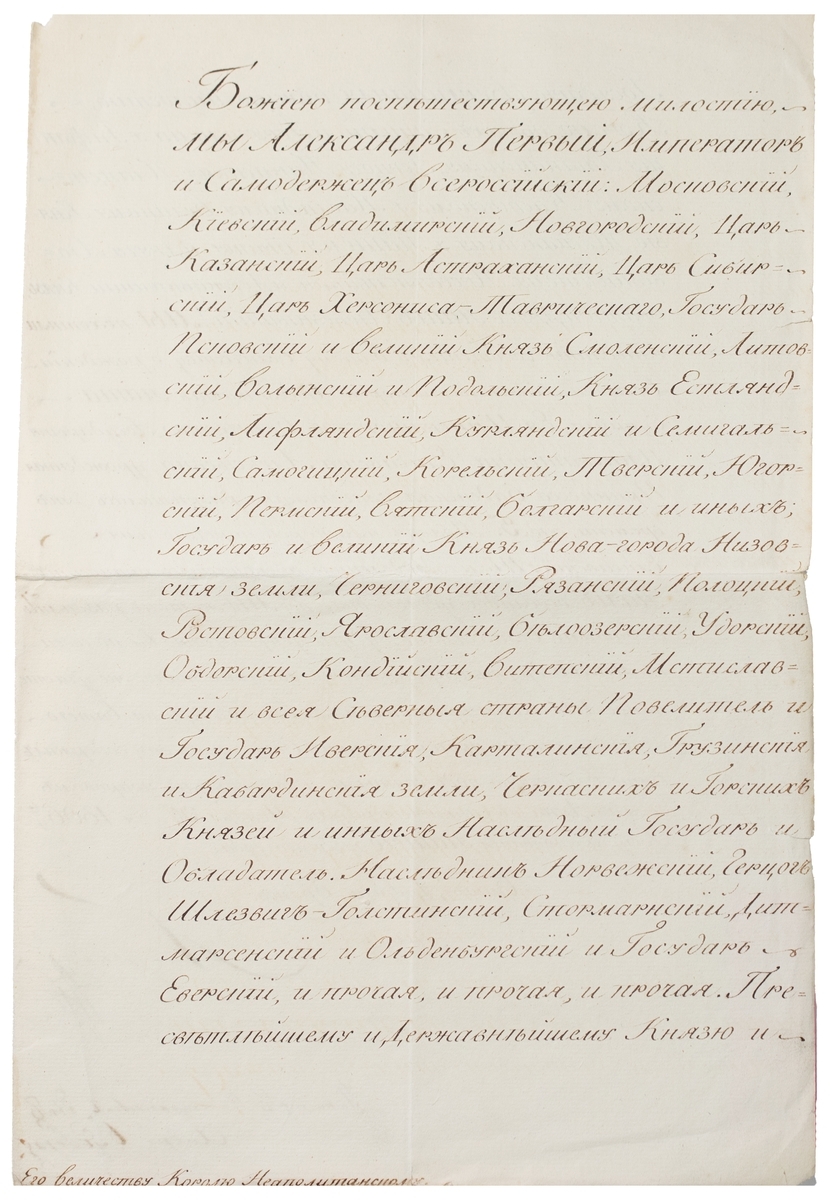 Божіею поспѣшествующею милостію,
мы Александръ Первый, Императоръ
и Самодержецъ Всероссійскій: Московскій,
Кіевскій, Владимирскій, Новгородскій, Царь
Казанскій, Царь Астраханскій, Царь Сибир=
скій, Царь Херсониса-Таврическаго, Государь
Псковскій и Великій Князь Смоленскій, Литов=
скій, Волынскій и Подольскій, Князь Естлянд=
скій, Лифляндскій, Курляндскій и Семигаль=
скій, Самогицкій, Корельскій, Тверскій, Югор=
скій, Пермскій, Вятскій, Болгарскій и иныхъ;
Государь и Великій Князь Нова-города Низов=
скія земли, Черниговскій, Рязанскій, Полоцкій,
Ростовскій, Ярославскій, Бѣлоозерскій, Удорскій,
Обдорскій, Кондійскій, Витепскій, Мстислав=
скій и всея Сѣверныя страны Повелитель и
Государь Иверскія, Карталинскія, Грузинскія
и Кабардинскія земли, Черкаскихъ и Горскихъ
Князей и инныхъ Наслѣдный Государь и
Обладатель. Наслѣдникъ Норвежскій, Герцогъ
Шлезвигъ-Голстинскій, Стормарнскій, Дит=
марсенскій и Ольденбургскій и Государь
Еверскій, и прочая, и прочая, и прочая. Пре=
свѣтлѣйшему и Державнѣйшему Князю и
Его Величеству Королю Неаполитанскому.